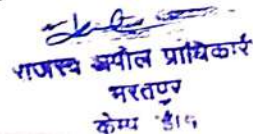 राजस्व अपील प्राधिकारी
भरतपुर
केम्प